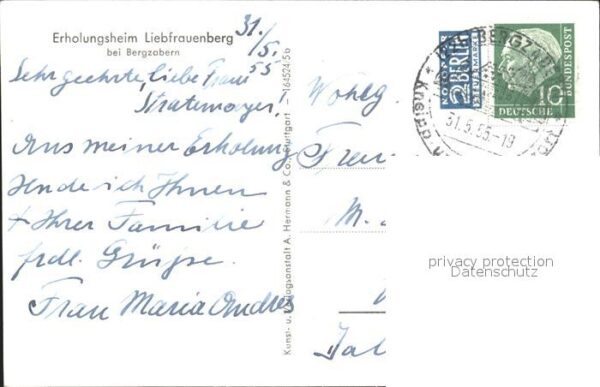 Erholungsheim Liebfrauenberg
bei Bergzabern
31./5.
55
Sehr geehrte, liebe Frau
Stratemeyer,!
Aus meiner Erholung
sende ich Ihnen
+ Ihrer Familie
frdl. Grüsse.
Frau Maria Andres
Kunst- u. Verlagsanstalt A. Hermann & Co. Stuttgart
164524 5b
Wohlg.
Frau
M.
NOTOPFER
2 BERLIN
STEUERMARKE
BERGZAB
31.5.55-19
DEUTSCHE
BUNDESPOST
10
privacy protection
Datenschutz